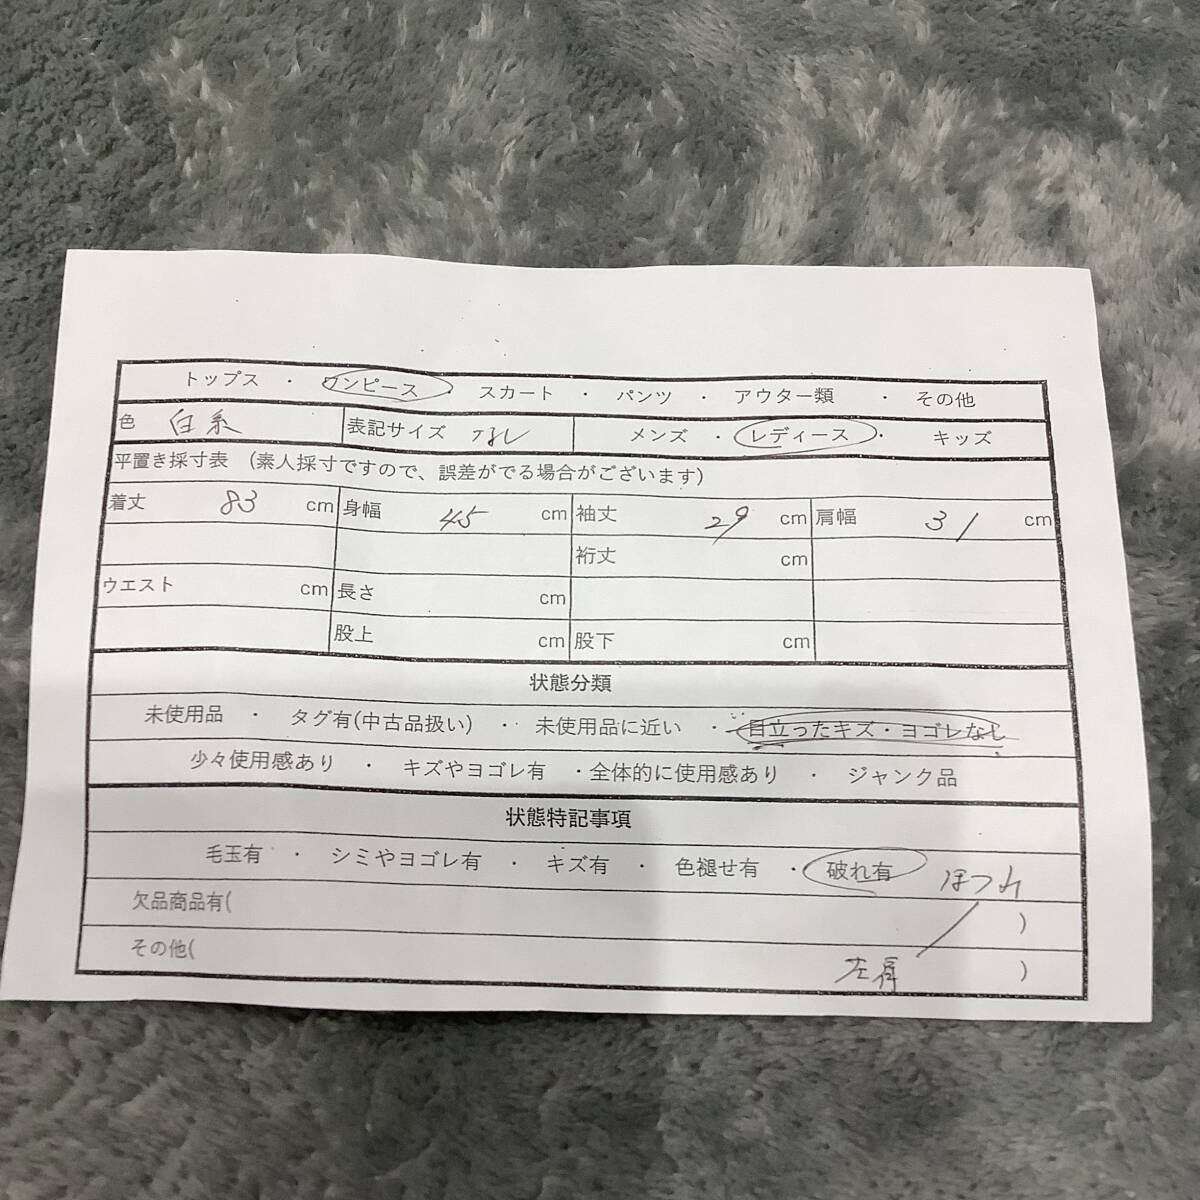 トップス ・ ワンピース ・ スカート ・ パンツ ・ アウター類 ・ その他
色 白系 表記サイズ なし メンズ ・ レディース ・ キッズ
平置き採寸表 (素人採寸ですので、誤差がでる場合がございます)
着丈 83 cm 身幅 45 cm 袖丈 29 cm 肩幅 31 cm
裄丈 cm
ウエスト cm 長さ cm
股上 cm 股下 cm
状態分類
未使用品 ・ タグ有(中古品扱い) ・ 未使用品に近い ・ 目立ったキズ・ヨゴレなし
少々使用感あり ・ キズやヨゴレ有 ・全体的に使用感あり ・ ジャンク品
状態特記事項
毛玉有 ・ シミやヨゴレ有 ・ キズ有 ・ 色褪せ有 ・ 破れ有 ほつれ
欠品商品有( )
その他( 左肩 )